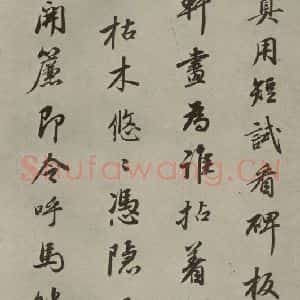 真用短試看碑板
軒畫為誰拈着
枯木悠〻憑隱
開簾即令呼馬
Shufawang.cn